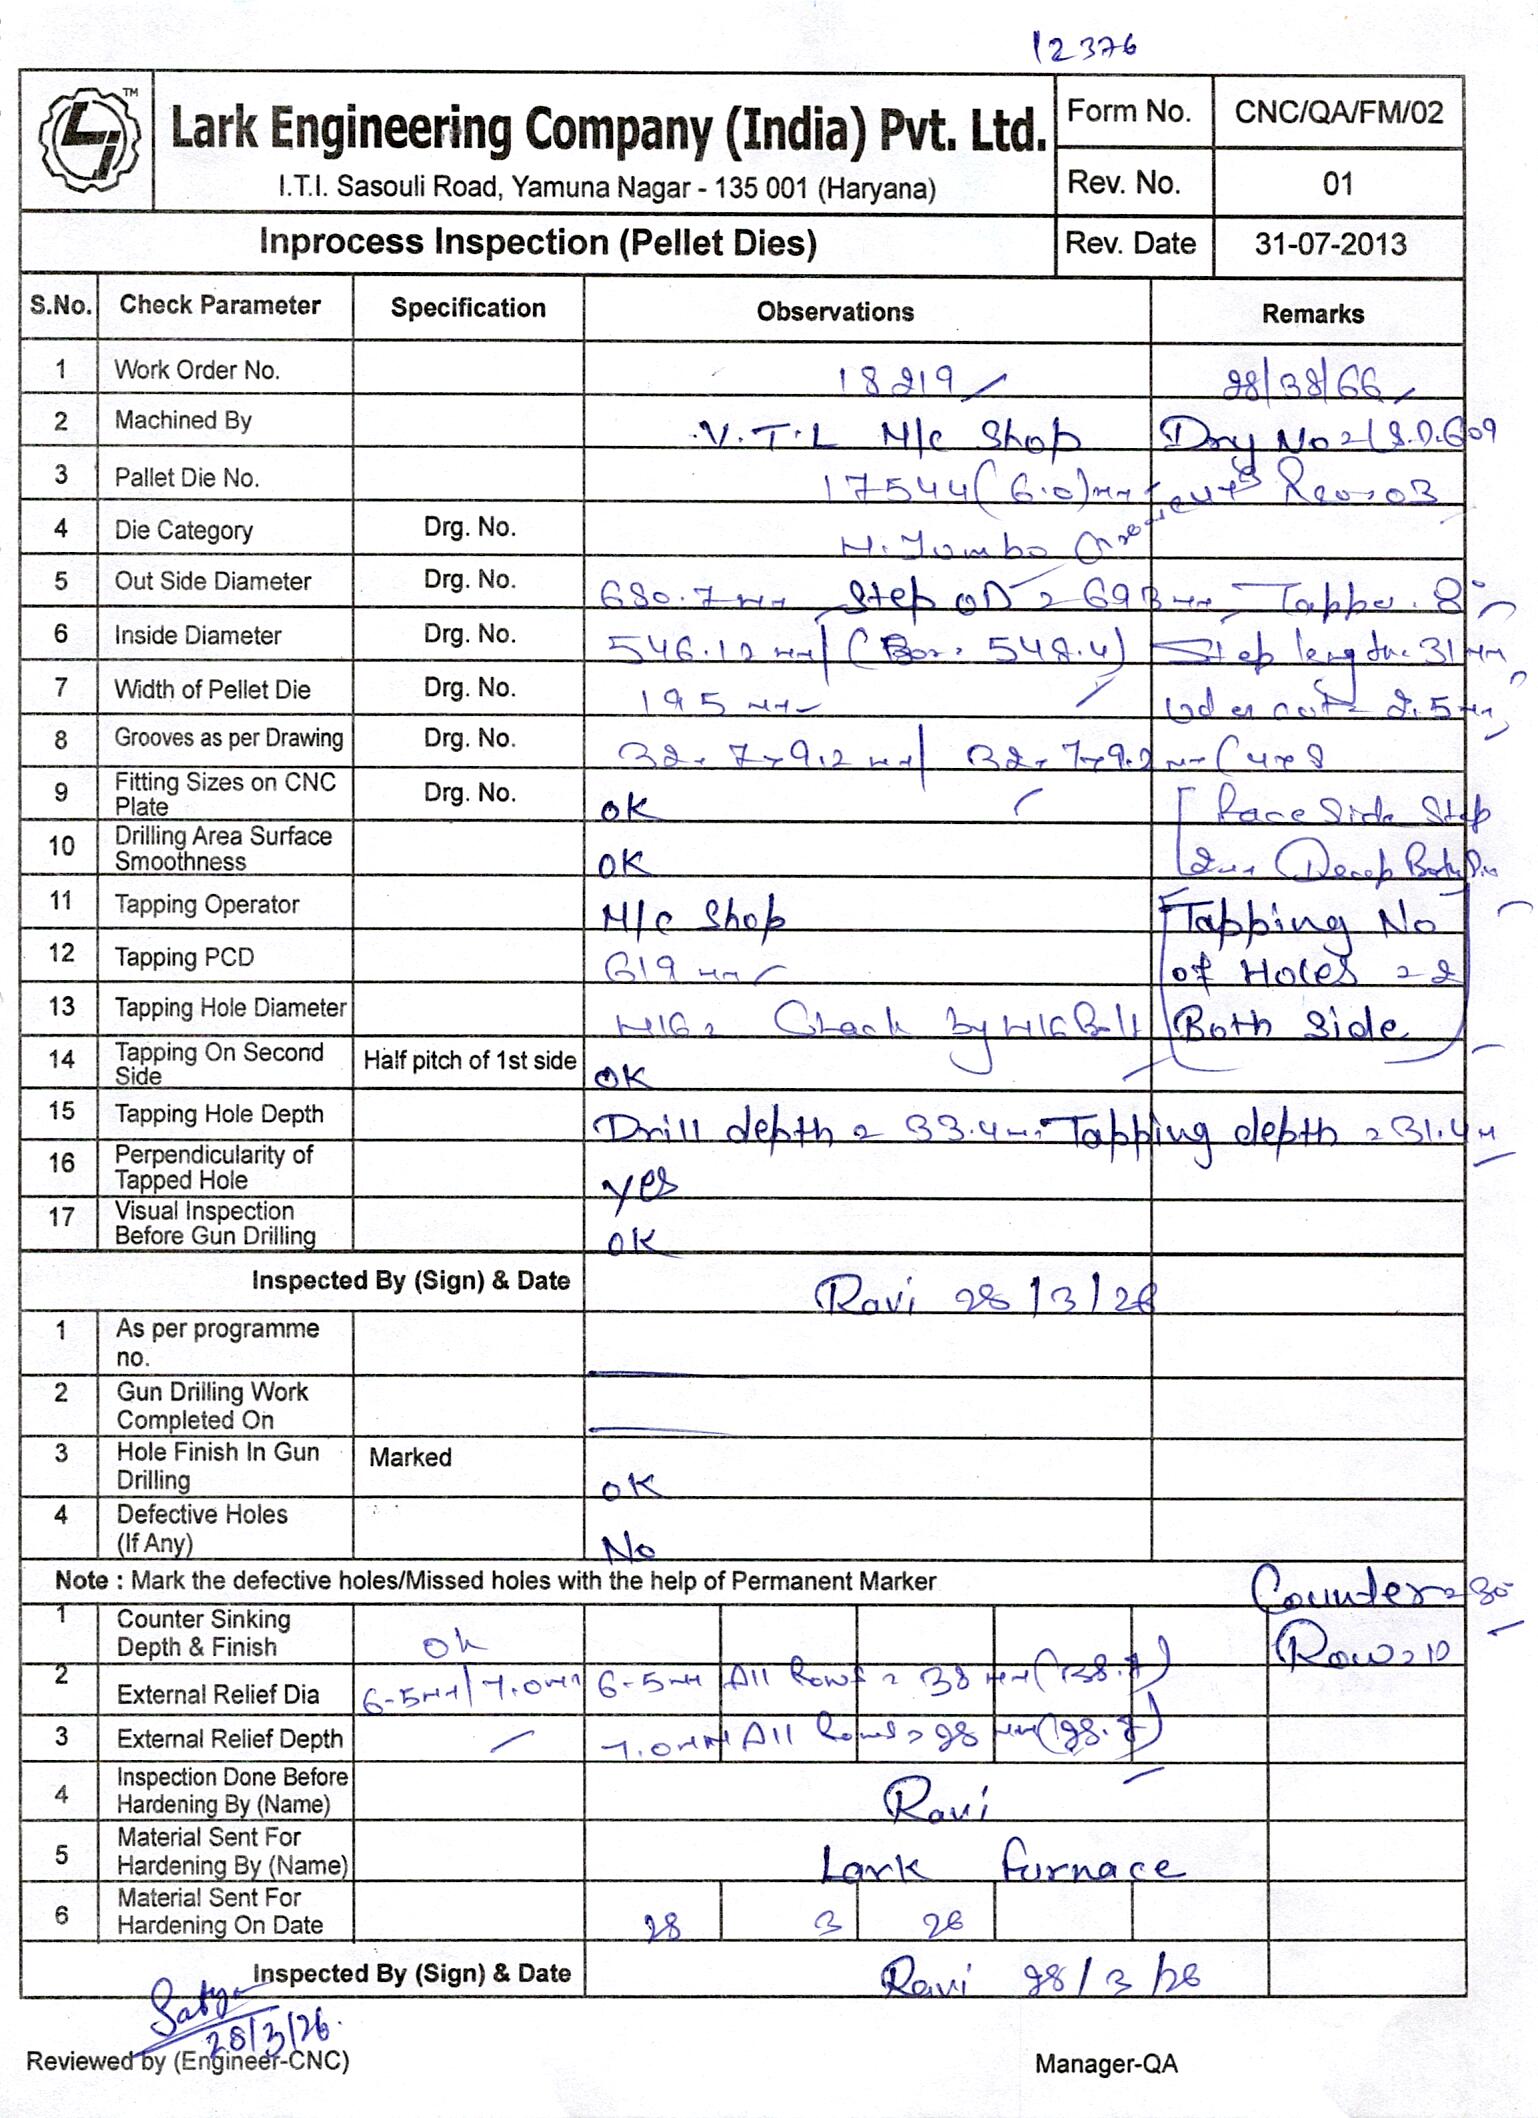 12376
LI TM
Lark Engineering Company (India) Pvt. Ltd.
I.T.I. Sasouli Road, Yamuna Nagar - 135 001 (Haryana)
Form No. CNC/QA/FM/02
Rev. No. 01
Inprocess Inspection (Pellet Dies) Rev. Date 31-07-2013
S.No. Check Parameter Specification Observations Remarks
1 Work Order No. 18219 28/38/66
2 Machined By V.T.L M/c Shop Drg No = L.S.D.609
3 Pallet Die No. 17544 (6.0) mm Rev = 03
4 Die Category Drg. No. H. Jumbo
5 Out Side Diameter Drg. No. 680.7 mm Step OD = 693 mm Tapper. 8°
6 Inside Diameter Drg. No. 546.12 mm (Bor = 548.4) Step length = 31 mm
7 Width of Pellet Die Drg. No. 195 mm 2.5 mm
8 Grooves as per Drawing Drg. No. 32 x 7 x 9.2 mm / 32 x 7 x 9.2 mm
9 Fitting Sizes on CNC Plate Drg. No. OK [Race Side Step
10 Drilling Area Surface Smoothness OK Deep
11 Tapping Operator M/c Shop [Tapping No
12 Tapping PCD 619 mm of Holes = 2
13 Tapping Hole Diameter M16 = Check by M16 Bolt Both Side]
14 Tapping On Second Side Half pitch of 1st side OK
15 Tapping Hole Depth Drill depth = 33.4 mm Tapping depth = 31.4 m
16 Perpendicularity of Tapped Hole yes
17 Visual Inspection Before Gun Drilling OK
Inspected By (Sign) & Date Ravi 28/3/26
1 As per programme no.
2 Gun Drilling Work Completed On
3 Hole Finish In Gun Drilling Marked OK
4 Defective Holes (If Any) No
Note : Mark the defective holes/Missed holes with the help of Permanent Marker Counter = 30
1 Counter Sinking Depth & Finish Ok Row = 10
2 External Relief Dia 6-5 mm / 7.0 mm 6-5 mm All Rows = 38 mm (38.7)
3 External Relief Depth 7.0 mm All Rows = 28 mm (28.7)
4 Inspection Done Before Hardening By (Name) Ravi
5 Material Sent For Hardening By (Name) Lark furnace
6 Material Sent For Hardening On Date 28 3 26
Inspected By (Sign) & Date Ravi 28/3/26
Satya
28/3/26.
Reviewed by (Engineer-CNC) Manager-QA